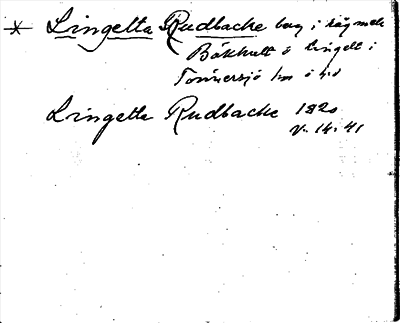 * Lingetta Rudbacke bag i råg med
Bökhult o Lingelt i
Tönnersjö hm o hd
Lingetta Rudbacke 1820
V. 14. 41